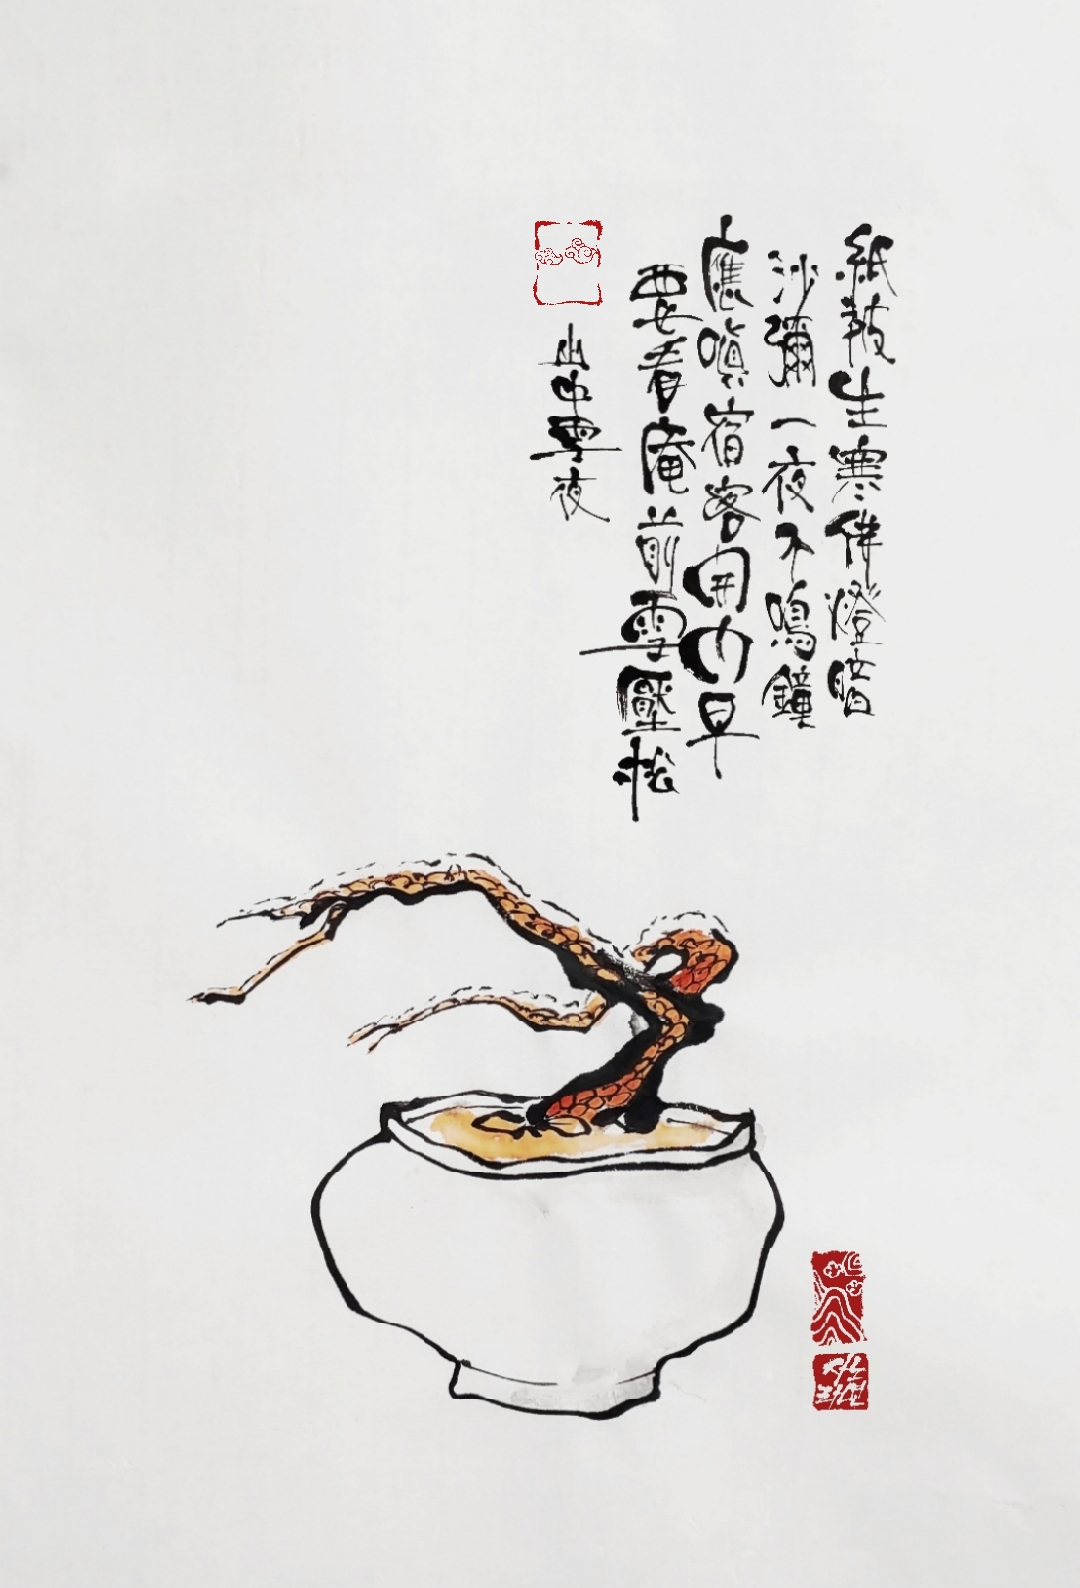 紙被生寒佛燈暗
沙彌一夜不鳴鐘
應嗔宿客開門早
要看庵前雪壓松
山中雪夜